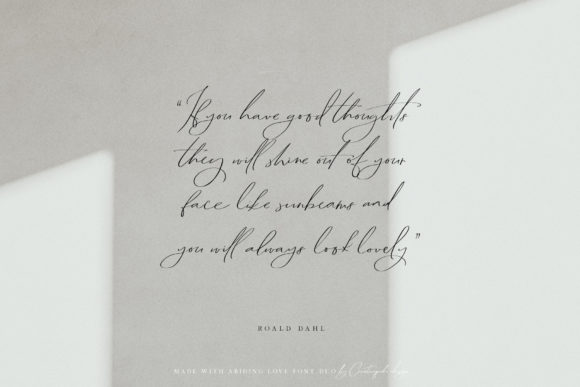 “If you have good thoughts
they will shine out of your
face like sunbeams and
you will always look lovely”
ROALD DAHL
MADE WITH ABIDING LOVE FONT DUO by